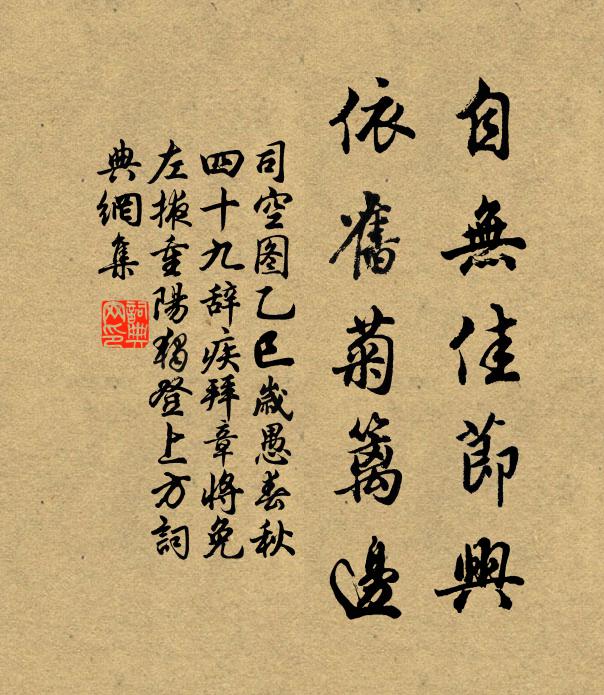 自無佳節興
依舊菊籬邊
司空图乙巳歲愚春秋
四十九辞疾拜章将免
左掖重陽獨登上方詞
典網集
詞典
网印